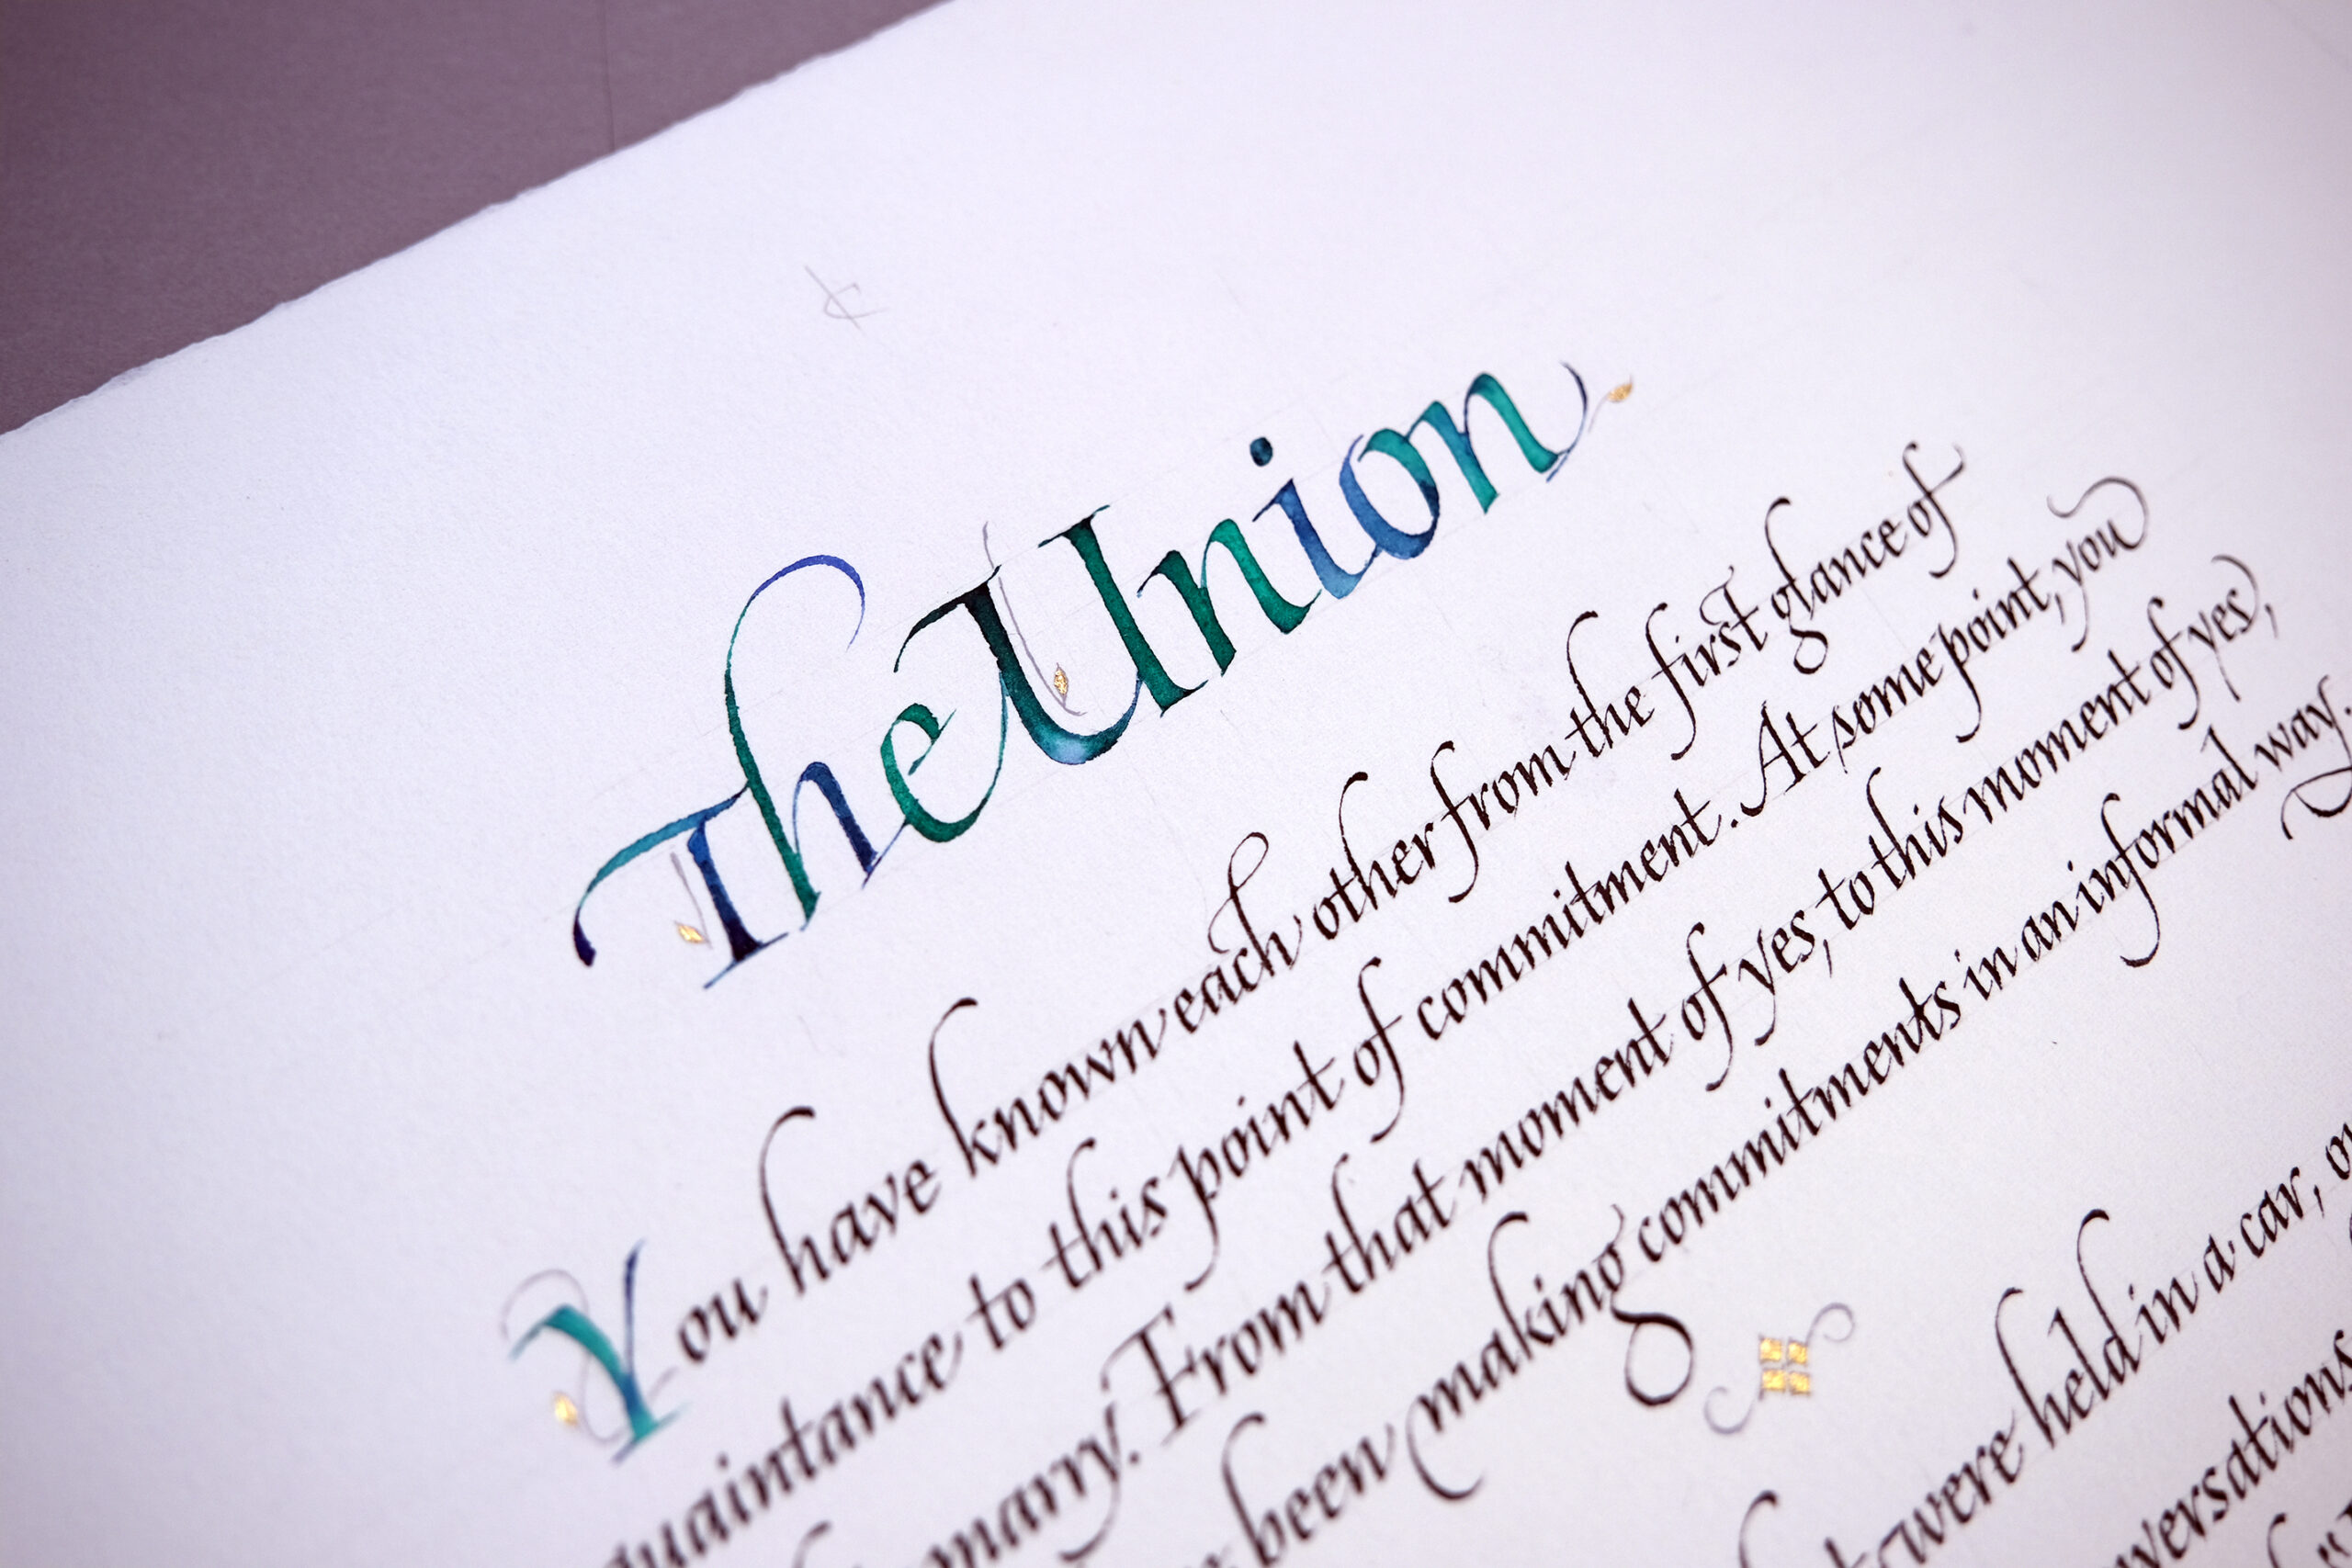 The Union
You have known each other from the first glance of
quaintance to this point of commitment. At some point, you
marry. From that moment of yes, to this moment of yes,
been making commitments in an informal way.
were held in a car,
versations